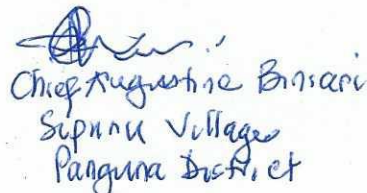 Chief Augustine Binsari
Sipuru Village
Panguna District